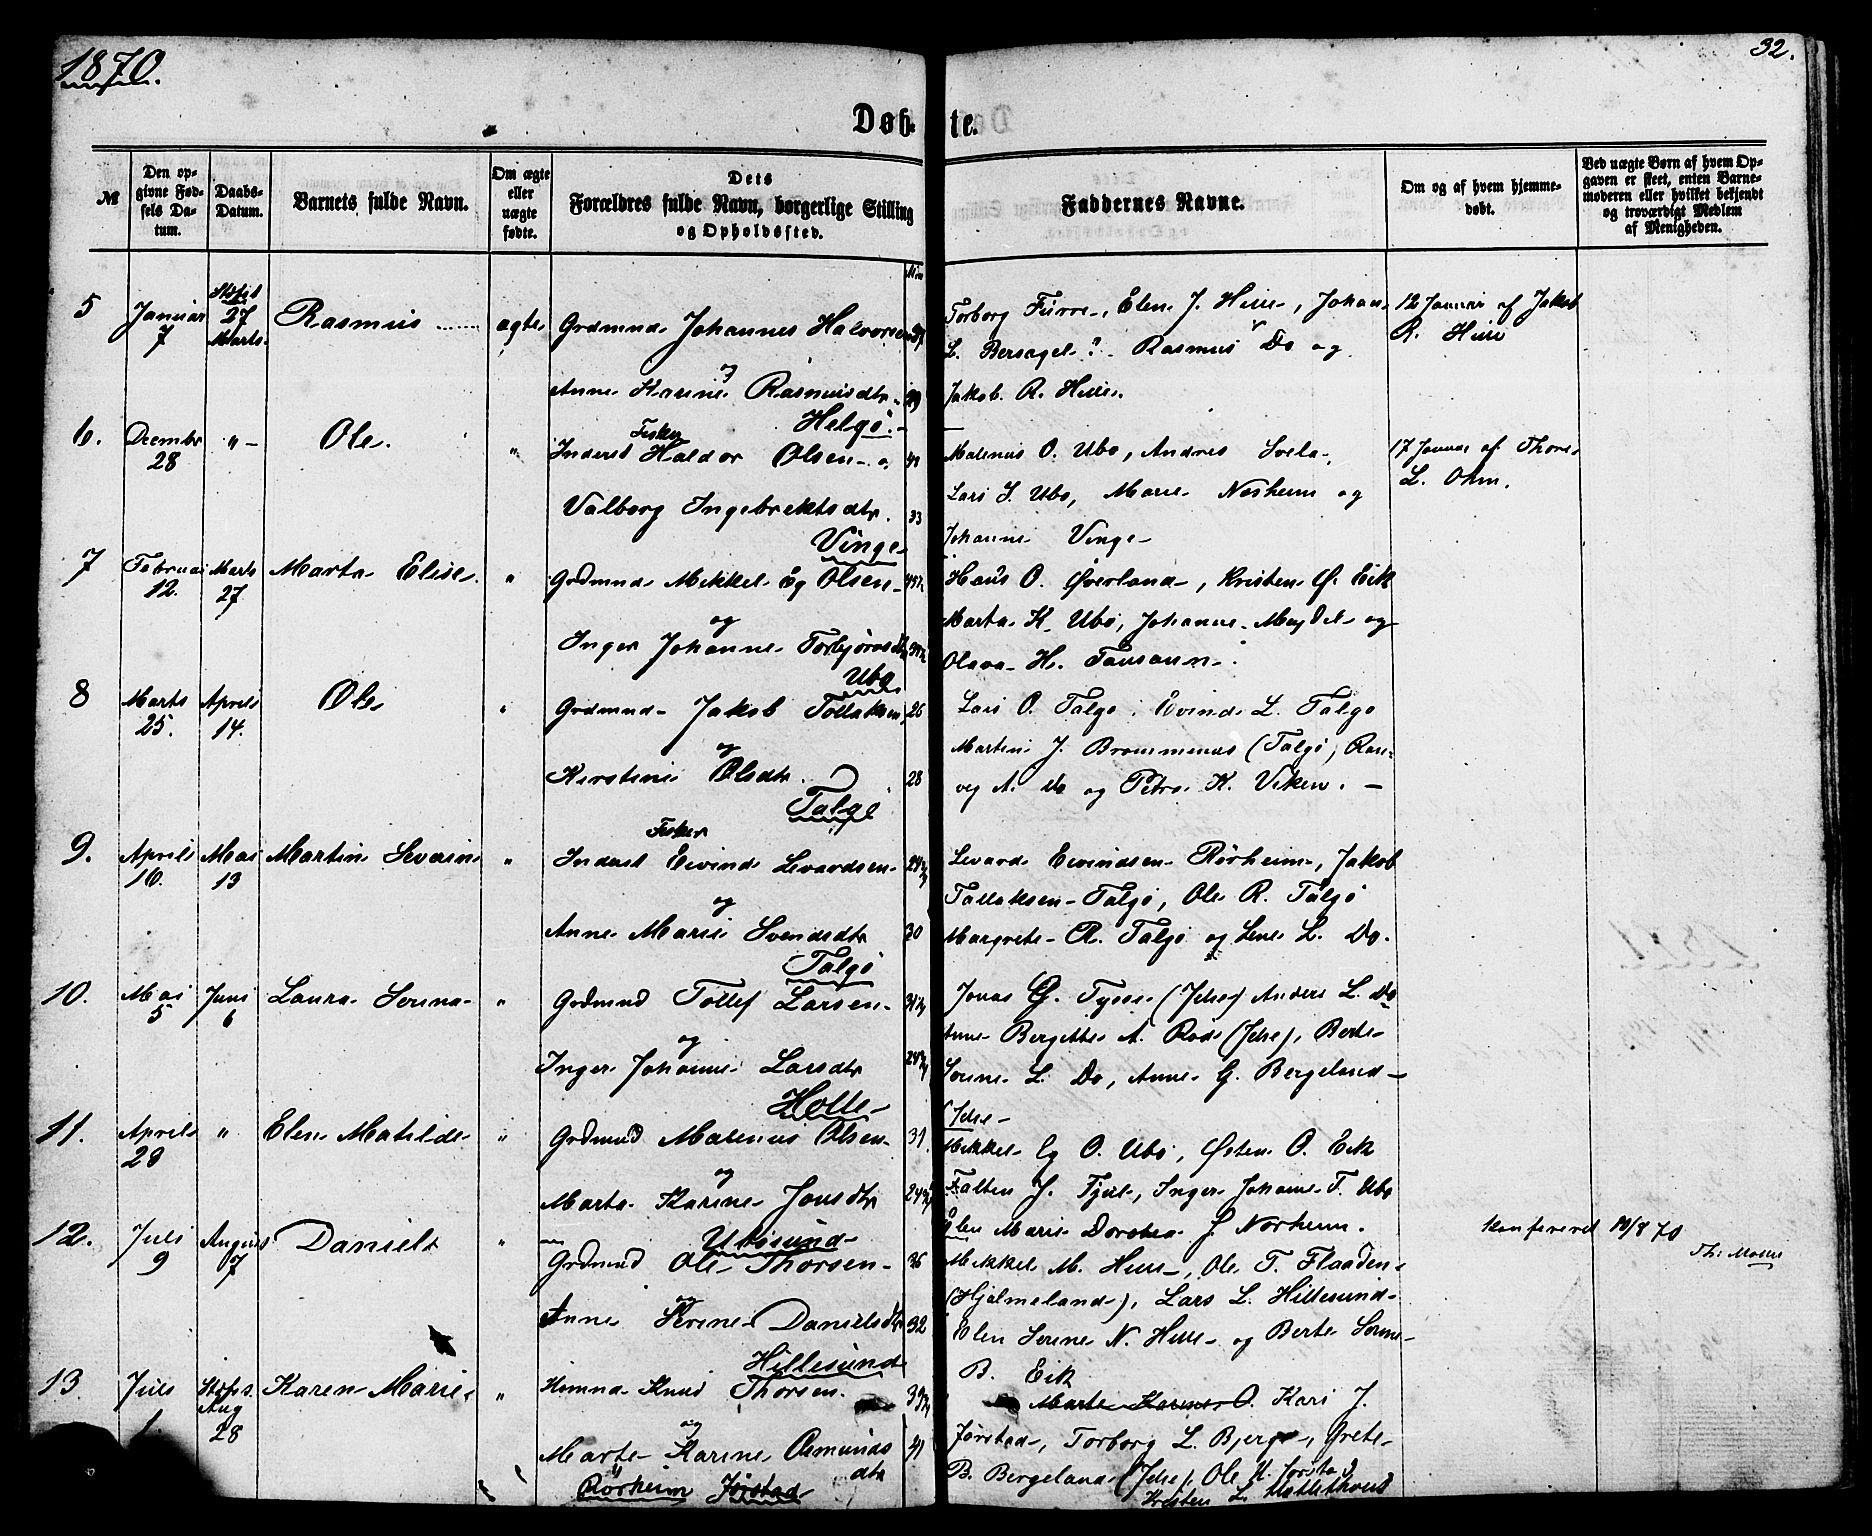 1870.
32.
Døb- te.
№
Den op-
givne Fød-
sels Da-
tum.
Daabs-
Datum.
Barnets fulde Navn.
Om ægte
eller
uægte
fødte.
Dets
Forældres fulde Navn, borgerlige Stilling
og Opholdssted.
Faddernes Navne.
Om og af hvem hjemme-
døbt.
Ved uægte Børn af hvem Op-
gaven er skeet, enten Barne-
moderen eller hvilket bekjendt
og troværdigt Medlem
af Menigheden.
5
Januar
7
Stafst
27
Marts.
Rasmus
ægte
Grdmnd. Johannes Halvorsen
og
Anne Karine Rasmusdtr. 29
Helgø.
Torborg Furre, Elen J. Hille, Johan
L. Bersagel? Rasmus Do og
Jakob R. Hille.
12 Januar af Jakob
R. Hille
6.
Decembr
28
"
Ole.
"
Fisker
Inderst Haldor Olsen og 41
Valborg Ingebrektsdtr. 33
Vinge
Malenus O. Ubø, Andres Svela,
Lars J. Ubø, Marie Nesheim og
Johanne Vinge
17 Januar af Thore
L. Ohm.
7
Februar
12.
Marts
27
Marta Elise.
"
Grdmnd. Mikkel Eg Olsen
og
Inger Johanne Torbjørnsdtr
Ubø
Hans O. Øverland, Kristen Ø. Eik
Marta K. Ubø, Johanne Magdel og
Olava H.
8
Marts
25.
Aprils
14.
Ole
"
Grdmnd. Jakob Tollaksen 26
og
Kirstine Olsdtr. 28
Talgø
Lars O. Talgø, Eivind L. Talgø
Martin J. Brommenes (Talgø, Ran-
veg A. Do og Petra K. Viken.
9.
Aprils
10.
Mai
13
Martin Severin
"
Fisker
Inderst Eivind Levardsen
og
Anne Marie Svendsdtr 30
Talgø
Levard Eivindsen Rørheim, Jakob
Tallaksen Talgø, Ole R. Talgø
Margrete R. Talgø og Lene L. Do.
10.
Mai
5
Juni
6
Laura Serina
"
Grdmnd Tollef Larsen
og
Inger Johanne Larsdtr
Holle
Jonas G. Tysse (Jelse) Anders L. Do
Anne Bergitte A. Rod (Jelse), Berte
Serine L. Do, Anne G. Bergeland
(Jelse
11.
Aprils
28
"
Elen Matilde
"
Grdmnd Malenus Olsen 31
og
Marta Karine Jonsdtr
Ubøsund
Mikkel Eg O. Ubø, Østen O. Eik
Falten J. Fjul, Inger Johanne T. Ubø
Elen Marie Dorotea J. Norheim.
12.
Juli
9
August
7
Daniel
"
Grdmnd Ole Thorsen 36
og
Anne Serine Danielsdtr 32
Hillesund
Mikkel M. Hille, Ole T. Flaaden
(Hjelmeland), Lars L. Hillesund
Elen Serine N. Hille og Berte Serine
B. Eik
Konfereret 19/8 70
13
Juli
1.
Stafst.
Aug
28
Karen Marie
"
Hmmnd Knud Thorsen.
og
Marte Karine Osmunds 41
dtr
Rørheim Jørstad
Marte Karine O. Kari J.
Jørstad, Torborg L. Bjerge, Grete
B. Bergeland (Jelse), Ole K. Jørstad
Kristen L.